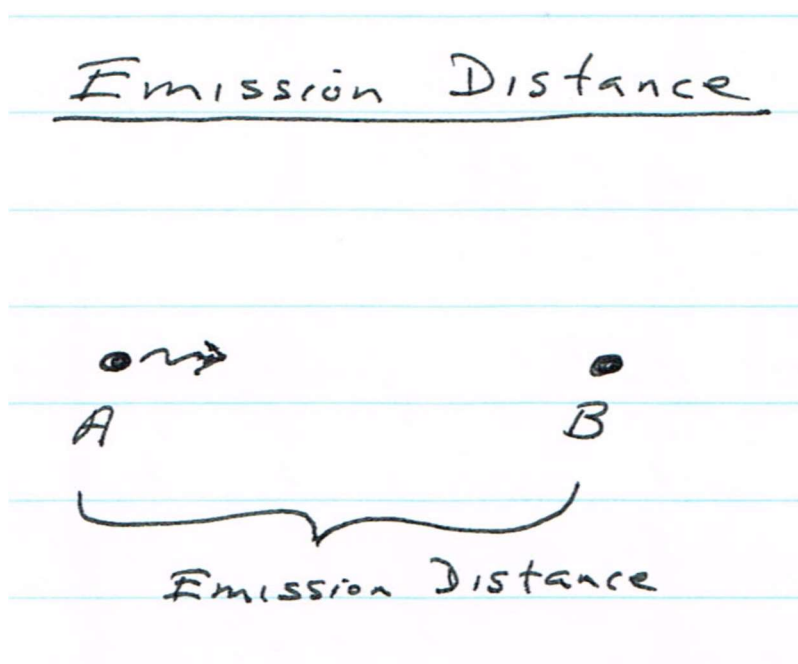 Emission Distance
A B
Emission Distance